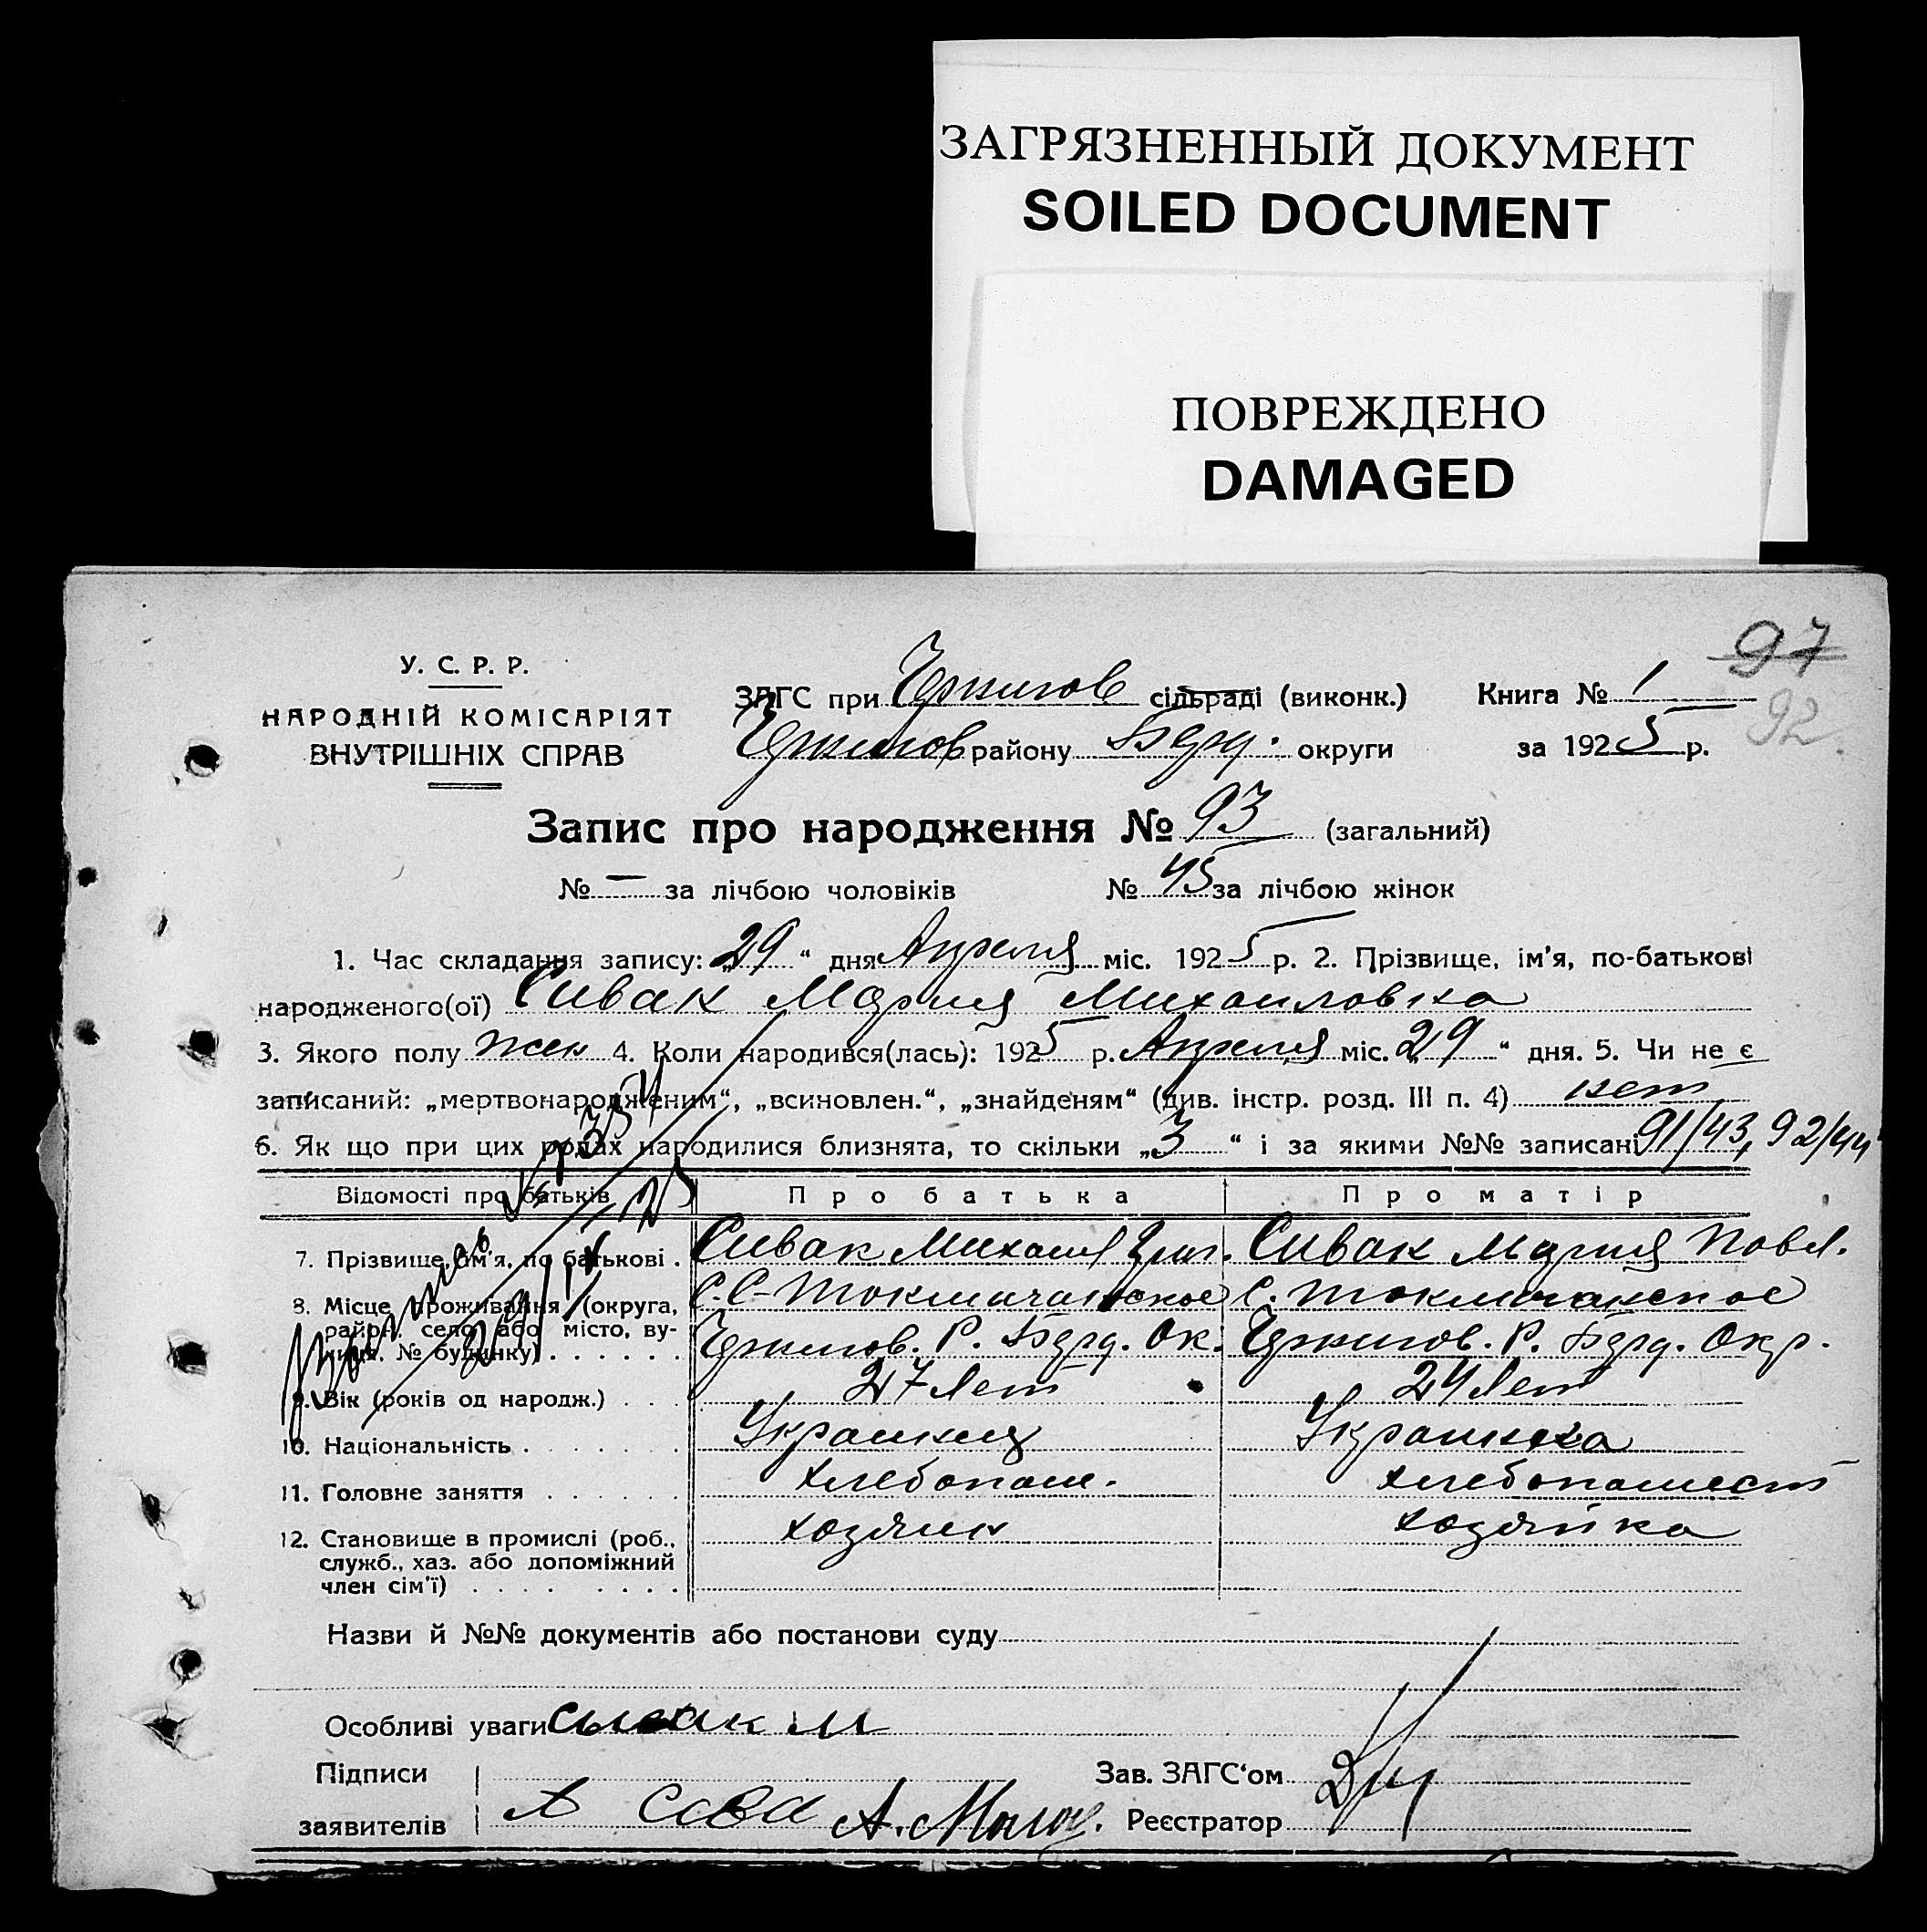 ЗАГРЯЗНЕННЫЙ ДОКУМЕНТ
SOILED DOCUMENT
ПОВРЕЖДЕНО
DAMAGED
97
92
У. С. Р. Р.
НАРОДНІЙ КОМІСАРІЯТ
ВНУТРІШНІХ СПРАВ
ЗАГС при Чернигов сільраді (виконк.) Книга № 1
Чернигов району Бердр. округи за 1925 р.
Запис про народження № 93 (загальний)
№ — за лічбою чоловіків № 45 за лічбою жінок
1. Час складання запису: „29“ дня Апреля міс. 1925 р. 2. Прізвище, ім’я, по-батькові
народженого(ої) Сивак Мария Михаиловна
3. Якого полу жен 4. Коли народився(лась): 1925 р. Апреля міс. „29“ дня. 5. Чи не є
записаний: „мертвонародженим“, „всиновлен.“, „знайденям“ (див. інстр. розд. III п. 4) нет
6. Як що при цих родах народилися близнята, то скільки „3“ і за якими №№ записані 91/43, 92/44
Відомості про батьків Про батька Про матір
7. Прізвище, ім’я, по батькові . Сивак Михаил Григ. Сивак Мария Павл.
8. Місце проживання (округа, С. С-Токмачанское С. Токмачанское
район, село або місто, вулиця, № будинку) Чернигов. Р. Бердр. Ок. Чернигов. Р. Бердр. Окр.
9. Вік (років од народж.) 27 лет 24 лет
10. Національність Украинец Украинка
11. Головне заняття хлебопаш. хлебопашест
12. Становище в промислі (роб., хозяин хозяйка
служб., хаз. або допоміжний
член сім’ї)
Назви й №№ документів або постанови суду
Особливі уваги Сывак М
Підписи Зав. ЗАГС‘ом
заявителів А Сава А. Реєстратор